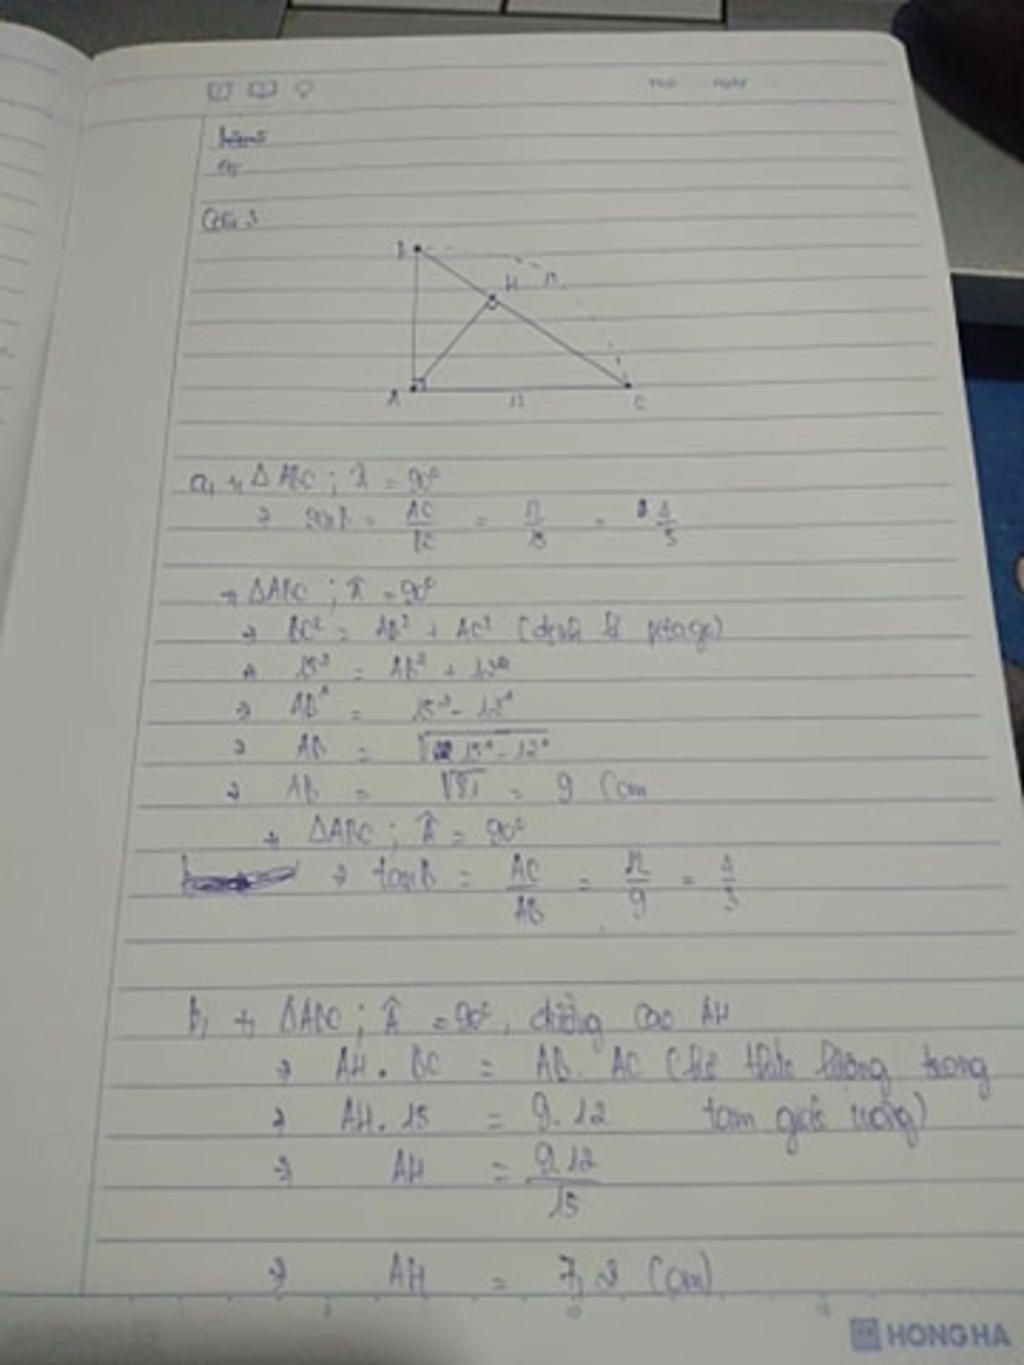 Thứ Ngày
Câu 3
B
H
15
A
12
C
a, + Δ ABC ; Â = 90°
⇒ sinB = AC/BC = 12/15 = 4/5
+ ΔABC ; Â = 90°
⇒ BC² = AB² + AC² (định lí pitago)
⇒ 15² = AB² + 12²
⇒ AB² = 15² - 12²
⇒ AB = √15² - 12²
⇒ AB = √81 = 9 (cm
+ ΔABC ; Â = 90°
⇒ tanB = AC/AB = 12/9 = 4/3
b, + ΔABC ; Â = 90°, đường cao AH
⇒ AH . BC = AB . AC (hệ thức lượng trong
⇒ AH . 15 = 9 . 12 tam giác vuông)
⇒ AH = 9.12/15
⇒ AH = 7,2 (cm)
5 10 15
HONG HA